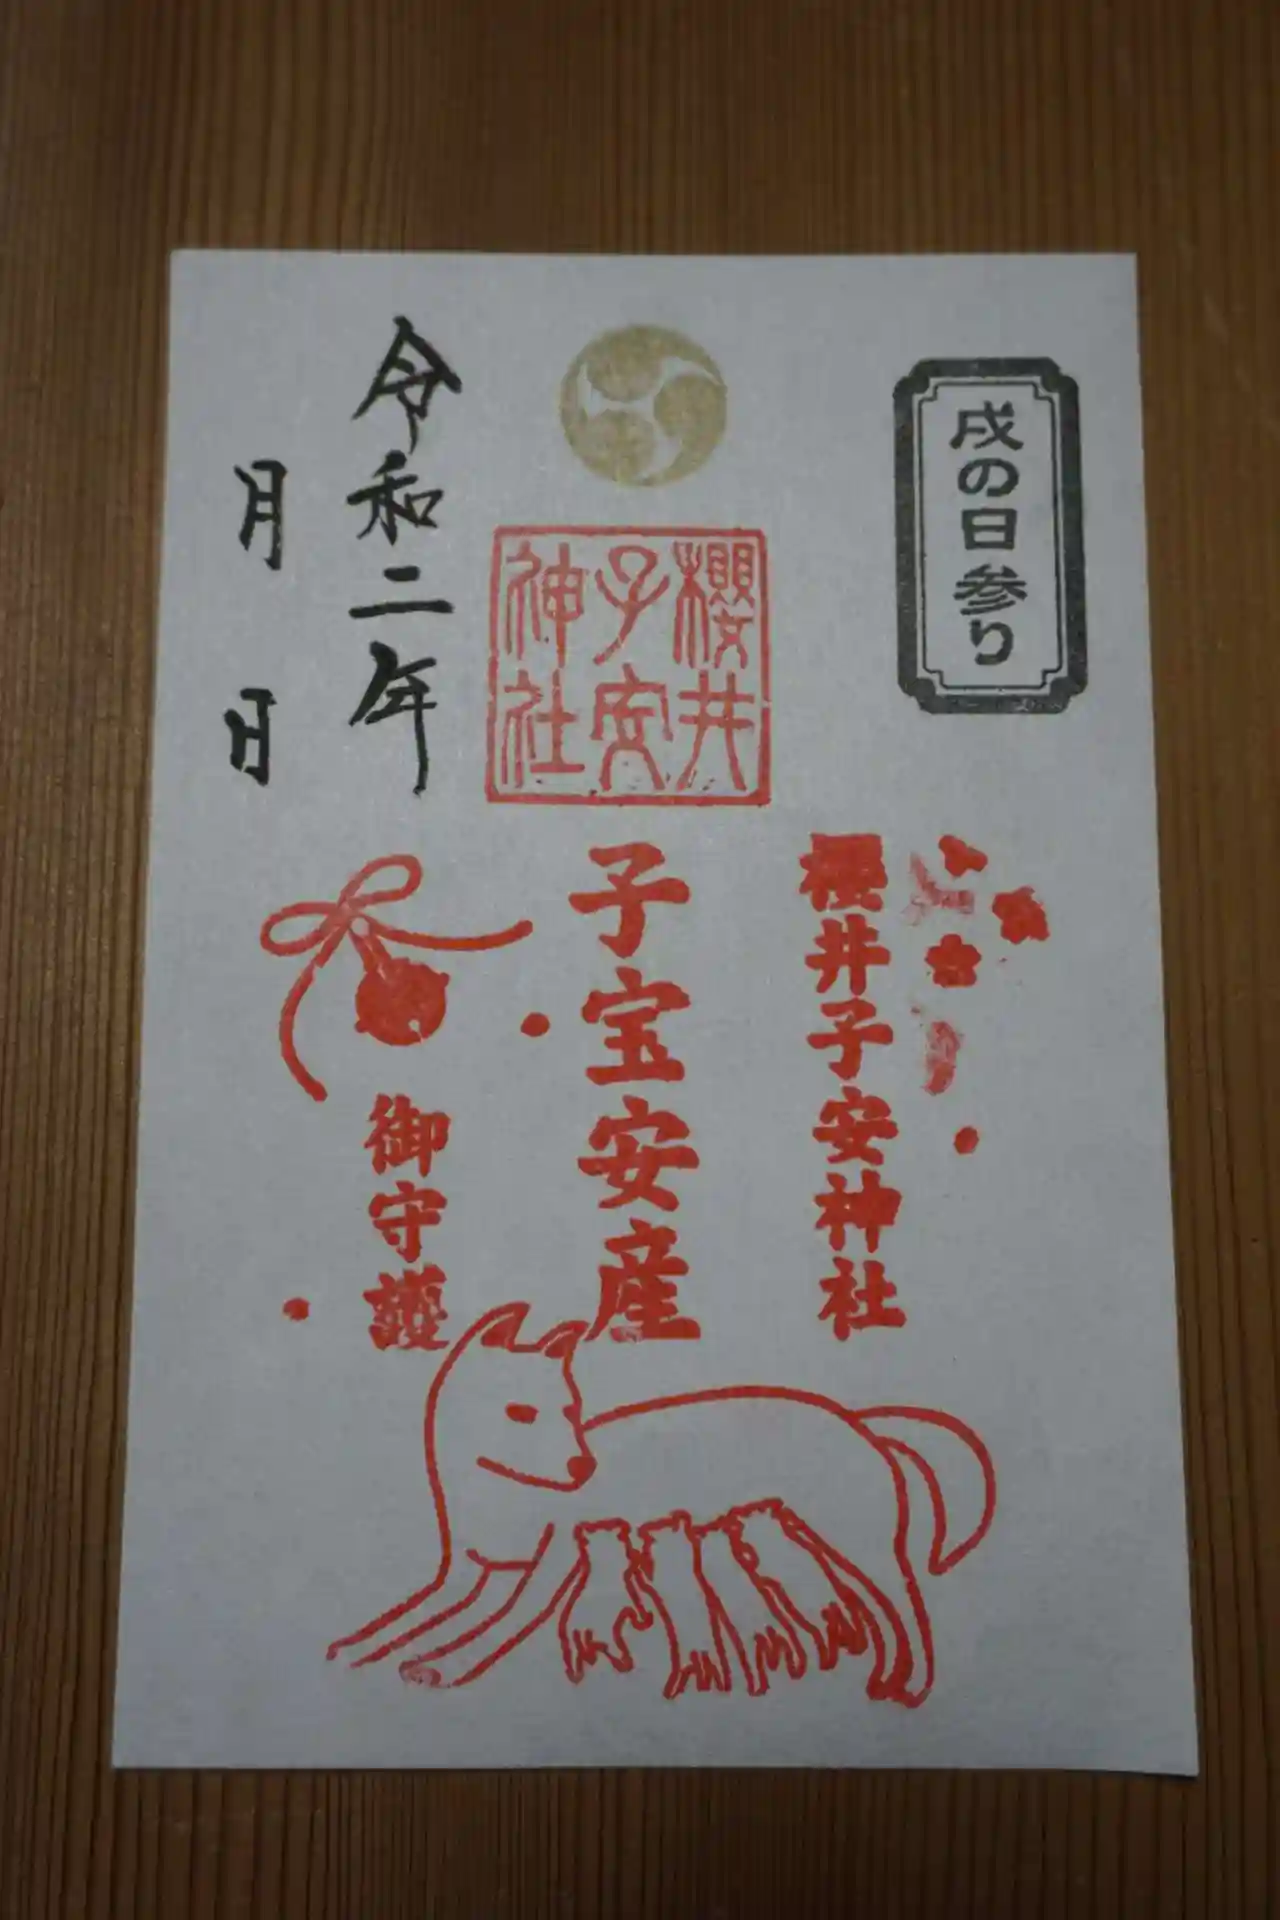 戌の日参り
櫻井子安神社
櫻井
子安
神社
子宝安産
御守護
令和二年
月 日